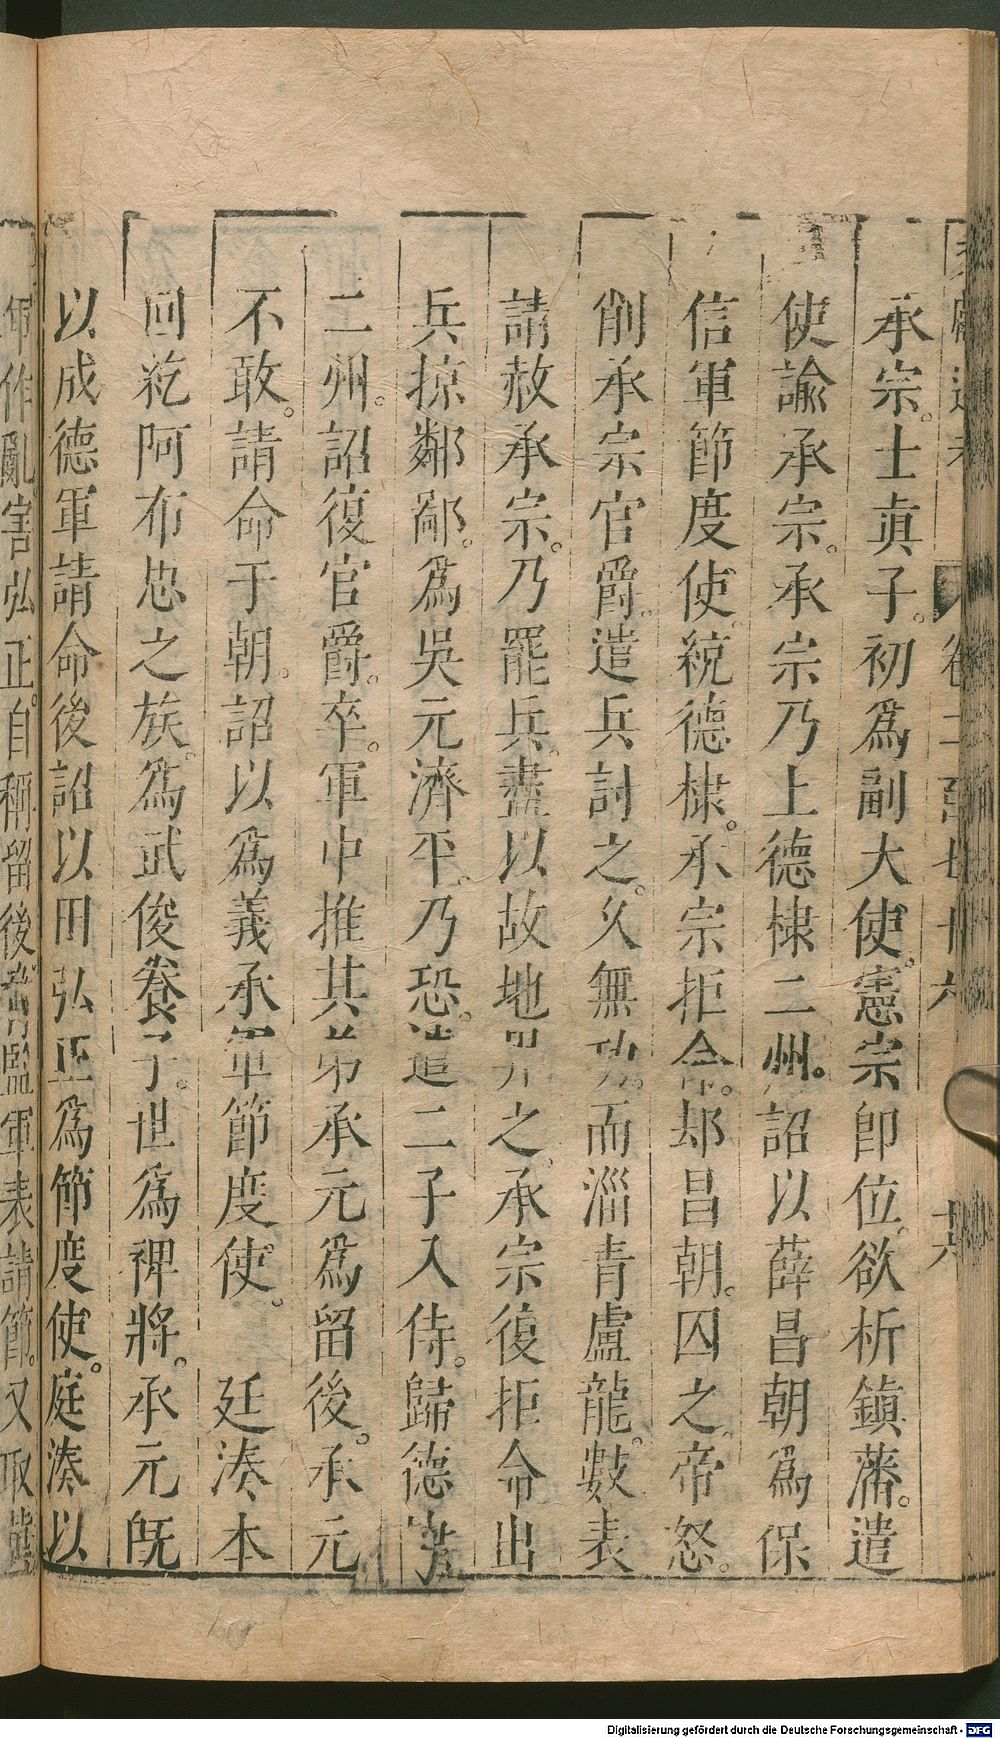 卷二百七十六
承宗。士真子。初為副大使。憲宗即位。欲析鎮藩。遣
使諭承宗。承宗乃上德棣二州。詔以薛昌朝為保
信軍節度使。統德棣。承宗拒命。却昌朝。囚之。帝怒。
削承宗官爵。遣兵討之。久無功。而淄青盧龍。數表
請赦承宗。乃罷兵。盡以故地畀之。承宗復拒命出
兵掠鄰鄙。為吳元濟平。乃恐。遣二子入侍。歸德棣
二州。詔復官爵。卒。軍中推其弟承元為留後。承元
不敢。請命于朝。詔以為義承軍節度使。 廷湊本
回紇阿布思之族。為武俊養子。世為裨將。承元既
以成德軍請命後詔以田弘正為節度使。庭湊以
作亂害弘正。自稱留後。監軍表請節。又取
Digitalisierung gefördert durch die Deutsche Forschungsgemeinschaft - DFG